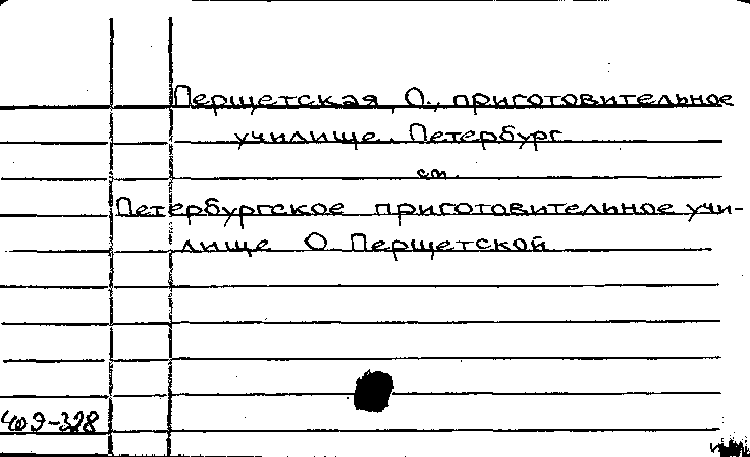 Перщетская, О., приготовительное
училище. Петербург
см.
Петербургское приготовительное учи-
лище О Перщетской
409-328